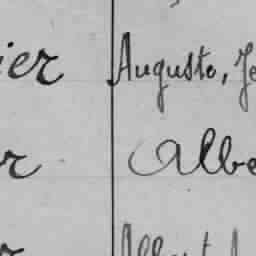 ier Auguste, Je
r Albe
r Albert A